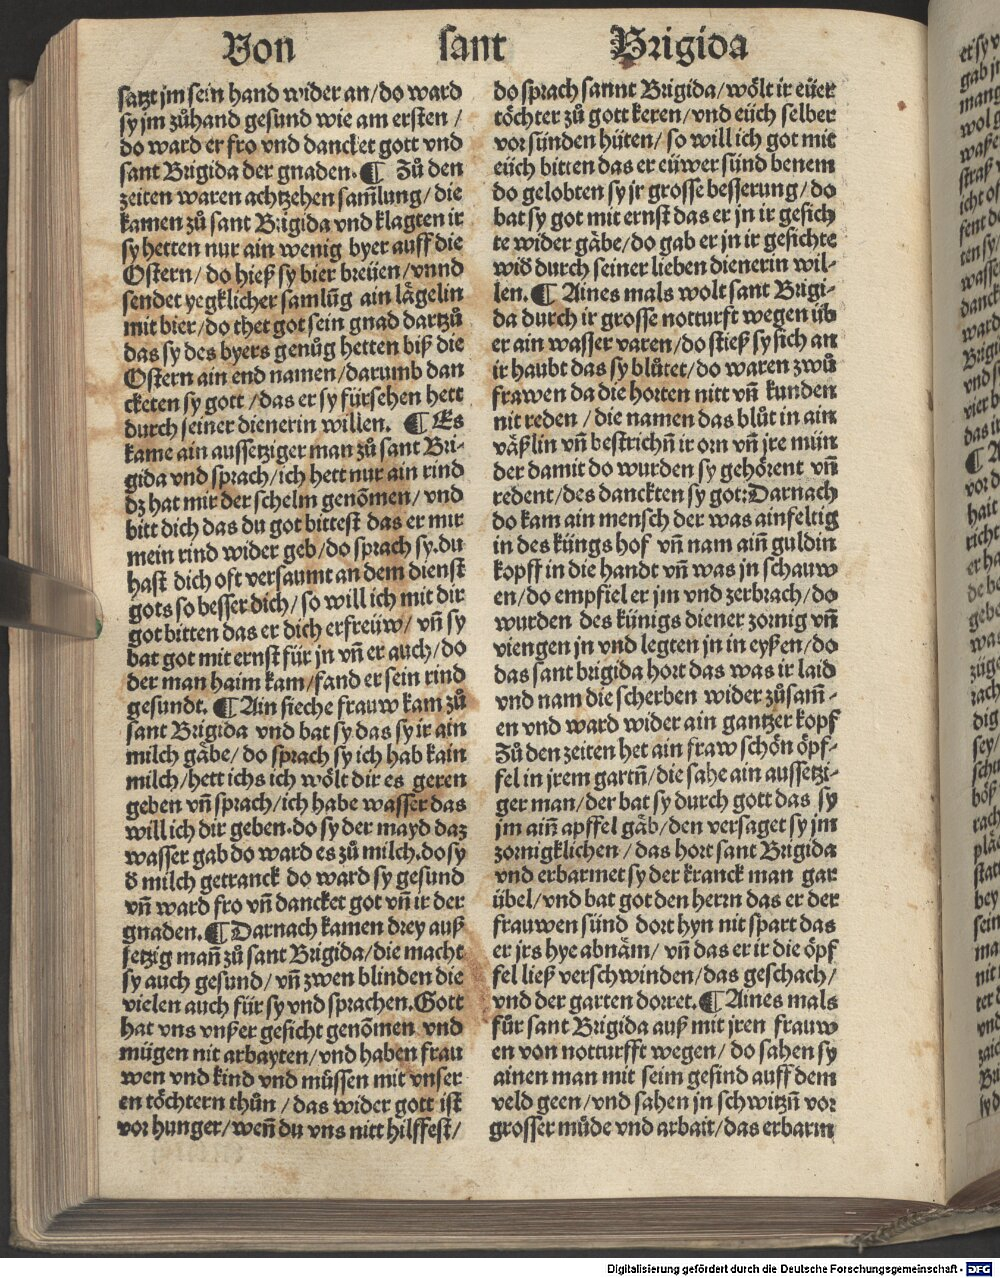 Von sant Brigida
satzt jm sein hand wider an/do ward
sy jm zůhand gesund wie am ersten /
do ward er fro vnd dancket gott vnd
sant Brigida der gnaden. ¶ Zů den
zeiten waren achtzehen sam̃lung/ die
kamen zů sant Brigida vnd klagten ir
sy hetten nur ain wenig byer auff die
Ostern/ do hieß sy bier breüen/vnnd
sendet yegklicher samlũg ain lägelin
mit bier/do thet got sein gnad dartzů
das sy des byers genůg hetten biß die
Ostern ain end namen/darumb dan
cketen sy gott /das er sy fürsehen hett
durch seiner dienerin willen. ¶ Es
kame ain aussetziger man zů sant Bri-
gida vnd sprach/ich hett nur ain rind
dz hat mir der schelm genõmen/ vnd
bitt dich das du got bittest das er mir
mein rind wider geb/do sprach sy.du
hast dich oft versaumt an dem dienst
gots so besser dich/ so will ich mit dir
got bitten das er dich erfreüw/ vñ sy
bat got mit ernst für jn vñ er auch/do
der man haim kam/fand er sein rind
gesundt. ¶ Ain sieche frauw kam zů
sant Brigida vnd bat sy das sy ir ain
milch gäbe/ do sprach sy ich hab kain
milch/hett ichs ich wölt dir es geren
geben vñ sprach/ich habe wasser das
will ich dir geben.do sy der mayd daz
wasser gab do ward es zů milch.do sy
d milch getranck do ward sy gesund
vñ ward fro vñ dancket got vñ ir der
gnaden. ¶ Darnach kamen drey auß
setzig mañ zů sant Brigida/die macht
sy auch gesund/ vñ zwen blinden die
vielen auch für sy vnd sprachen.Gott
hat vns vnßer gesicht genõmen vnd
mügen nit arbayten/vnd haben frau
wen vnd kind vnd müssen mit vnser
en töchtern thůn /das wider gott ist
vor hunger/weñ du vns nitt hilffest/
do sprach sannt Brigida/wölt ir eüer
töchter zů gott keren/vnd eüch selber
vor sünden hüten/ so will ich got mit
eüch bitten das er eüwer sünd benem
do gelobten sy jr grosse besserung/ do
bat sy got mit ernst das er jn ir gesich
te wider gäbe/do gab er jn ir gesichte
wid durch seiner lieben dienerin wil-
len. ¶ Aines mals wolt sant Brigi-
da durch ir grosse notturft wegen üb
er ain wasser varen/do stieß sy sich an
ir haubt das sy blůtet/do waren zwů
frawen da die horten nitt vñ kunden
nit reden /die namen das blůt in ain
väßlin vñ bestrichñ ir orn vñ jre mün
der damit do wurden sy gehörent vñ
redent/des danckten sy got:Darnach
do kam ain mensch der was ainfeltig
in des küngs hof vñ nam aiñ guldin
kopff in die handt vñ was jn schauw
en/do empfiel er jm vnd zerbrach/do
wurden des künigs diener zornig vñ
viengen jn vnd legten jn in eyßen/do
das sant brigida hort das was ir laid
vnd nam die scherben wider zůsam̃-
en vnd ward wider ain gantzer kopf
Zů den zeiten het ain fraw schön öpf-
fel in jrem gartñ/die sahe ain aussetzi-
ger man/der bat sy durch gott das sy
jm aiñ apffel gäb/den versaget sy jm
zornigklichen/das hort sant Brigida
vnd erbarmet sy der kranck man gar
übel/vnd bat got den herrn das er der
frauwen sünd dort hyn nit spart das
er jrs hye abnäm/ vñ das er ir die öpf
fel ließ verschwinden/das geschach/
vnd der garten dorret. ¶ Aines mals
für sant Brigida auß mit jren frauw
en von notturfft wegen/ do sahen sy
ainen man mit seim gesind auff dem
veld geen/vnd sahen jn schwitzñ vor
grosser müde vnd arbait/das erbarm
Digitalisierung gefördert durch die Deutsche Forschungsgemeinschaft - DFG